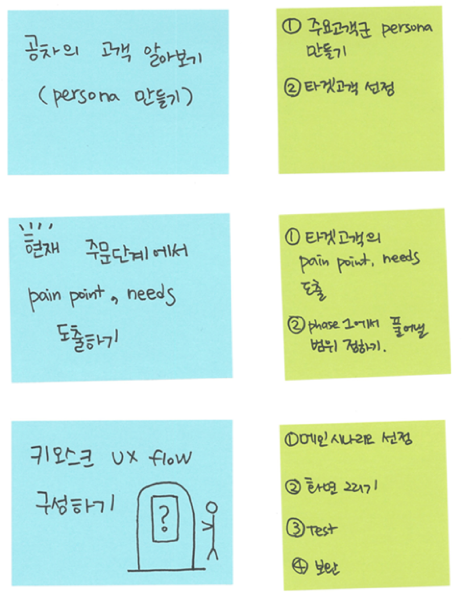 공차의 고객 알아보기
(persona 만들기)
① 주요고객군 persona
만들기
② 타겟고객 선정
현재 주문단계에서
pain point, needs
도출하기
① 타겟고객의
pain point, needs
도출
② phase 1에서 풀어낼
범위 정하기.
키오스크 UX flow
구성하기
?
① 메인시나리오 선정
② 화면 그리기
③ Test
④ 보완